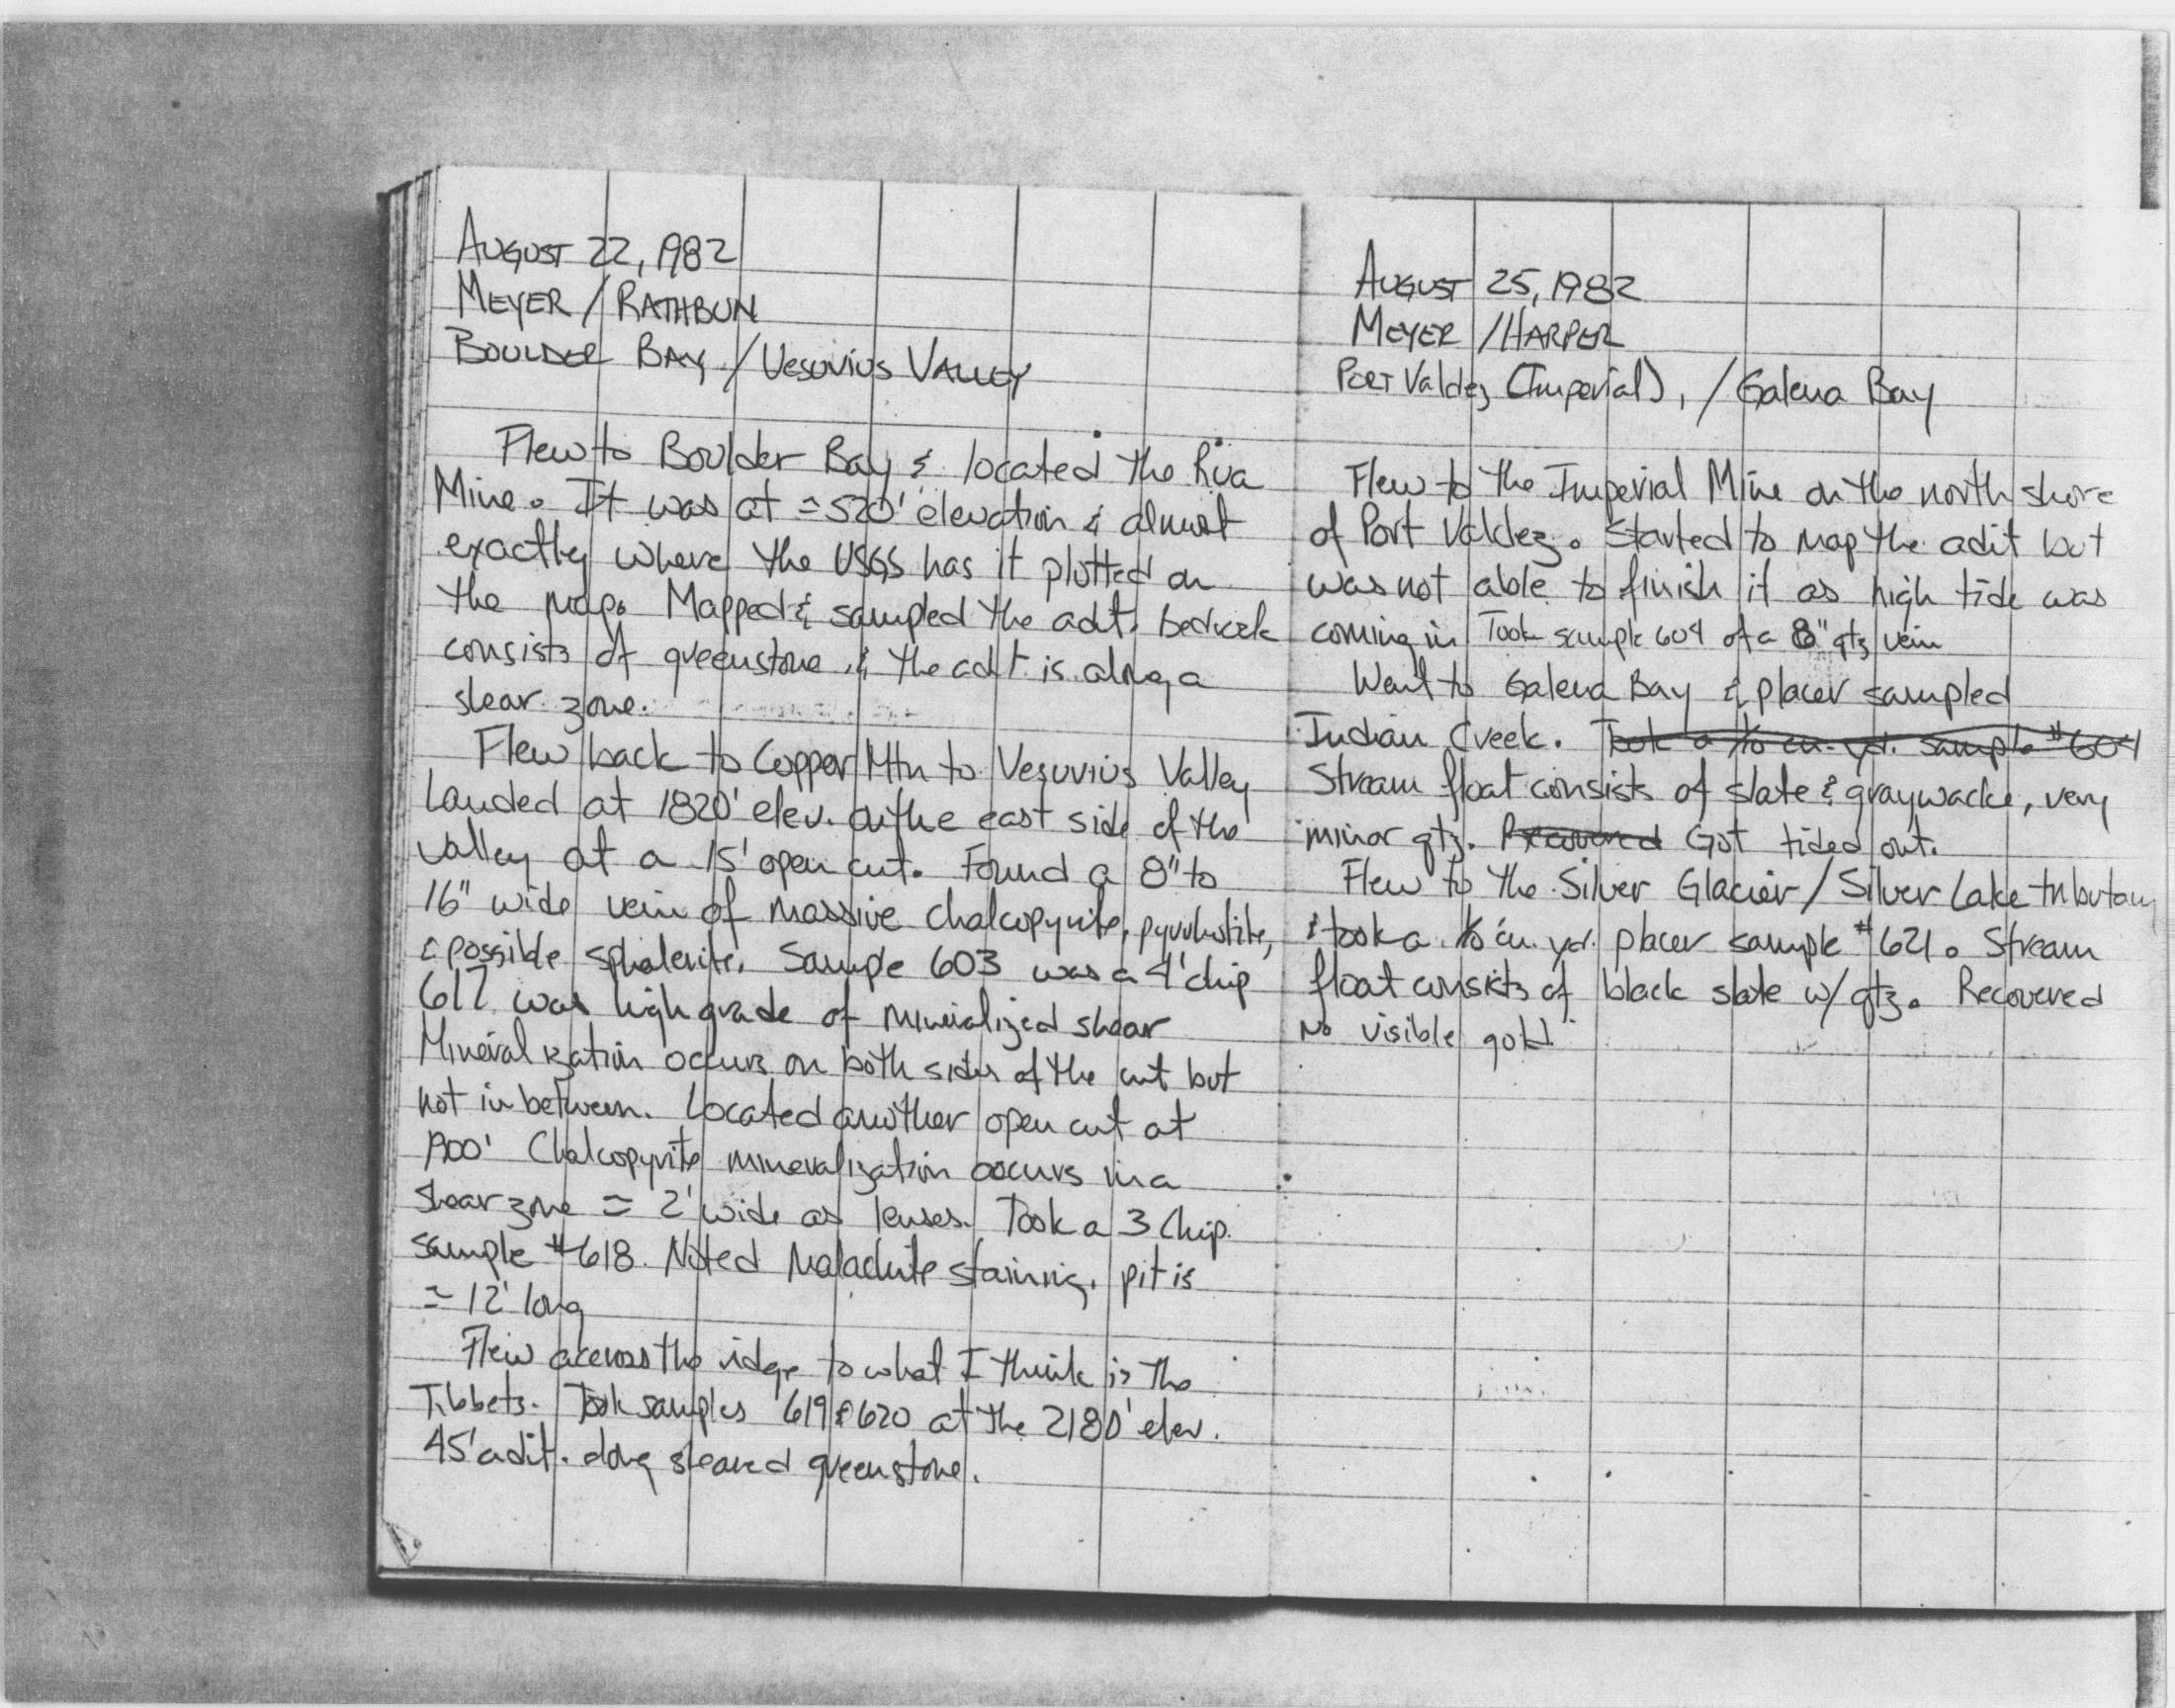 AUGUST 22, 1982
MEYER / RATHBUN
BOULDER BAY / VESUVIUS VALLEY
Flew to Boulder Bay & located the Rua
Mine. It was at ≈ 520' elevation & almost
exactly where the USGS has it plotted on
the map. Mapped & sampled the adit, bedrock
consists of greenstone & the adit is along a
shear zone.
Flew back to Copper Mtn to Vesuvius Valley
Landed at 1820' elev. on the east side of the
valley at a 15' open cut. Found a 8" to
16" wide vein of massive chalcopyrite, pyrrhotite,
& possible sphalerite. Sample 603 was a 4' chip
617 was high grade of mineralized shear
Mineralization occurs on both sides of the cut but
not in between. Located another open cut at
1900' Chalcopyrite mineralization occurs in a
shear zone ≈ 2' wide as lenses. Took a 3 chip
sample #618. Noted Malachite staining, pit is
≈ 12' long
Flew across the ridge to what I think is the
Tibbets. Took samples 619 & 620 at the 2180' elev.
45' adit. along sheared greenstone.
AUGUST 25, 1982
MEYER / HARPER
PORT Valdez (Imperial), / Galena Bay
Flew to the Imperial Mine on the north shore
of Port Valdez. Started to map the adit but
was not able to finish it as high tide was
coming in Took sample 604 of a 8" qtz vein
Went to Galena Bay & placer sampled
Indian Creek. Took a 1/10 cu. yd. sample #604
Stream float consists of slate & graywacke, very
minor qtz. Recovered Got tided out.
Flew to the Silver Glacier / Silver Lake tributary
& took a 1/10 cu. yd. placer sample #621. Stream
float consists of black slate w/ qtz. Recovered
No visible gold